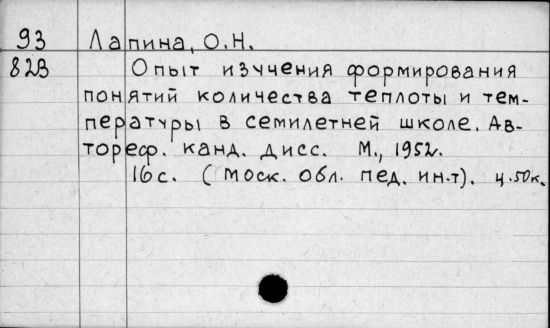 93 Лапина, О.Н.
823 Опыт изучения формирования
понятий количества теплоты и тем-
пературы в семилетней школе. Ав-
тореф. канд. дисс. М., 1952.
16с. (Моск. обл. пед. ин-т). ц. 50к.